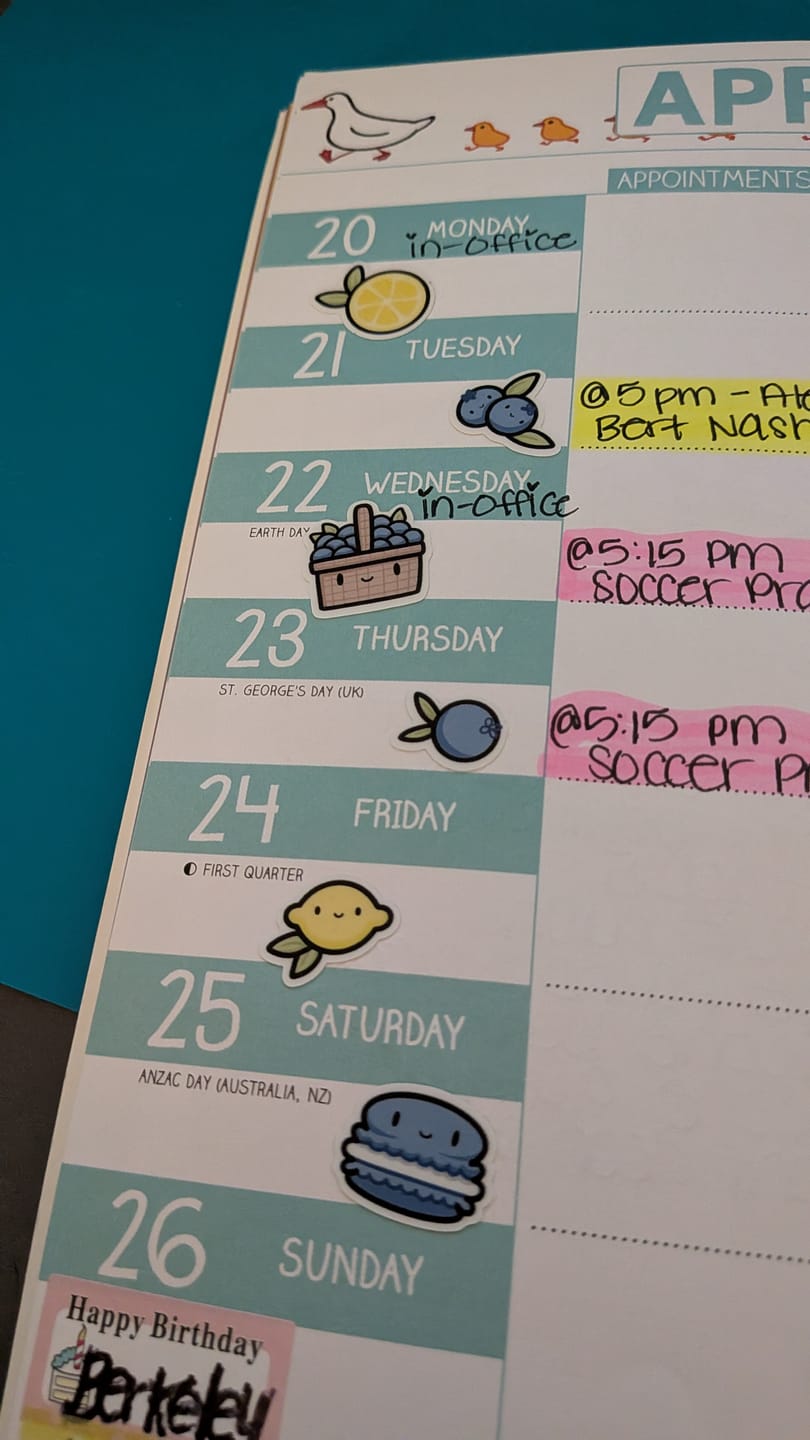 APPOINTMENTS
20 MONDAY
in-office
21 TUESDAY
@5pm -
Bert Nash
22 WEDNESDAY
in-office
EARTH DAY
@5:15 pm
Soccer
23 THURSDAY
ST. GEORGE'S DAY (UK)
@5:15 pm
Soccer
24 FRIDAY
FIRST QUARTER
25 SATURDAY
ANZAC DAY (AUSTRALIA, NZ)
26 SUNDAY
Happy Birthday
Berkeley